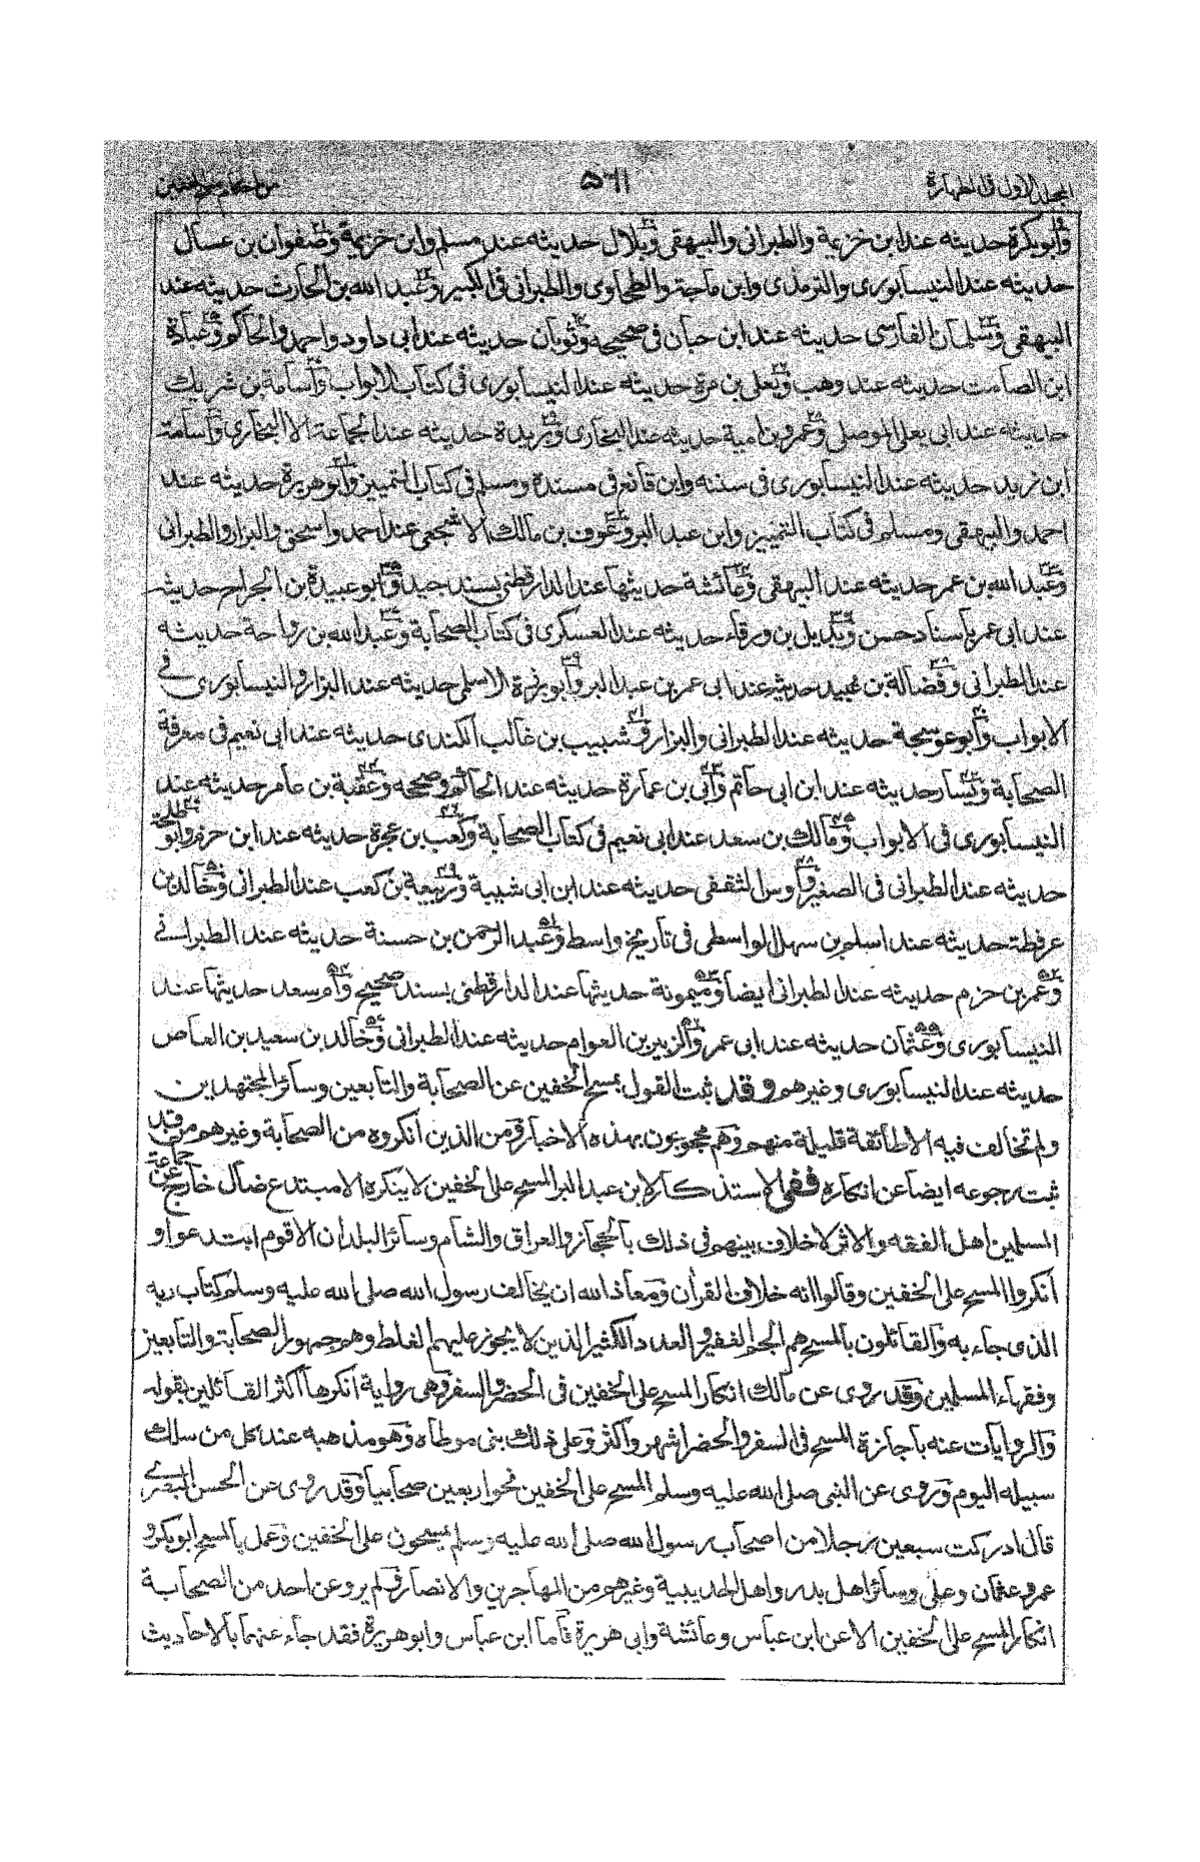 المجلد الاول في الطهارة ٥٦١ من احكام مسح الخفين
وابوبكرة حديثه عند ابن خزيمة والطبرانى والبيهقى وبلال حديثه عند مسلم وابن خزيمة وصفوان بن عسال
حديثه عند النيسابورى والترمذى وابن ماجة والطحاوى والطبرانى فى الكبير وعبد الله بن الحارث حديثه عند
البيهقى وسلمان الفارسى حديثه عند ابن حبان فى صحيحه وثوبان حديثه عند ابى داود واحمد والحاكم وعبادة
ابن الصامت حديثه عند وهب ويعلى بن مرة حديثه عند النيسابورى فى كتاب الابواب واسامة بن شريك
حديثه عند ابى يعلى الموصلى وعمرو بن امية حديثه عند البخارى وبريدة حديثه عند الجماعة الا البخارى واسامة
ابن زيد حديثه عند النيسابورى فى سننه وابن قانع فى مسنده ومسلم فى كتاب التمييز وابوهريرة حديثه عند
احمد والبيهقى ومسلم فى كتاب التمييز وابن عبد البر وعوف بن مالك الاشجعى عند احمد واسحق والبزار والطبرانى
وعبد الله بن عمر حديثه عند البيهقى وعائشة حديثها عند الدارقطنى بسند جيد وابو عبيدة بن الجراح حديثه
عند ابى عمر باسناد حسن وبديل بن ورقاء حديثه عند العسكرى فى كتاب الصحابة وعبد الله بن رواحة حديثه
عند الطبرانى وفضالة بن عبيد حديثه عند ابى عمر بن عبد البر وابو برزة الاسلمى حديثه عند البزار والنيسابورى فى
الابواب وابو عوسجة حديثه عند الطبرانى والبزار وشبيب بن غالب الكندى حديثه عند ابى نعيم فى معرفة
الصحابة ويسار حديثه عند ابن ابى حاتم وابى بن عمارة حديثه عند الحاكم وصححه وعقبة بن عامر حديثه عند
النيسابورى فى الابواب ومالك بن سعد عند ابى نعيم فى كتاب الصحابة وكعب بن عجرة حديثه عند ابن حزم وابو طلحة
حديثه عند الطبرانى فى الصغير واوس الثقفى حديثه عند ابن ابى شيبة وربيعة بن كعب عند الطبرانى وخالد بن
عرفطة حديثه عند اسلم بن سهل الواسطى فى تاريخ واسط وعبد الرحمن بن حسنة حديثه عند الطبرانى
وعمر بن حزم حديثه عند الطبرانى ايضا وميمونة حديثها عند الدارقطنى بسند صحيح وام سعد حديثها عند
النيسابورى وعثمان حديثه عند ابى عمر والزبير بن العوام حديثه عند الطبرانى وخالد بن سعيد بن العاص
حديثه عند النيسابورى وغيرهم وقد ثبت القول بمسح الخفين عن الصحابة والتابعين وسائر المجتهدين
ولم تخالف فيه الا طائفة قليلة منهم وهم محجوبون بهذه الاخبار ومن الذين انكروه من الصحابة وغيرهم من قد
ثبت رجوعه ايضا عن انكاره ففى الاستذكار لابن عبد البر المسح على الخفين لا ينكره الا مبتدع ضال خارج عن جماعة
المسلمين اهل الفقه والاثر لا خلاف بينهم فى ذلك بالحجاز والعراق والشام وسائر البلدان الا قوم ابتدعوا و
انكروا المسح على الخفين وقالوا انه خلاف القرأن ومعاذ الله ان يخالف رسول الله صلى الله عليه وسلم كتاب ربه
الذى جاء به والقائلون بالمسح هم الجم الغفير والعدد الكثير الذين لا يجوز عليهم الغلط وهم جمهور الصحابة والتابعين
وفقهاء المسلمين وقد روى عن مالك انكار المسح على الخفين فى الحضر والسفر وهى رواية انكرها اكثر القائلين بقوله
والروايات عنه باجازة المسح فى السفر والحضر اشهر واكثر وعلى ذلك بنى موطاه وهو مذهبه عند كل من سلك
سبيله اليوم وروى عن النبى صلى الله عليه وسلم المسح على الخفين نحو اربعين صحابيا وقد روى عن الحسن البصرى
قال ادركت سبعين رجلا من اصحاب رسول الله صلى الله عليه وسلم يمسحون على الخفين وعمل بالمسح ابوبكر و
عمر وعثمان وعلى وسائر اهل بدر واهل الحديبية وغيرهم من المهاجرين والانصار ولم يرو عن احد من الصحابة
انكار المسح على الخفين الا عن ابن عباس وعائشة وابى هريرة فاما ابن عباس وابو هريرة فقد جاء عنهما بالاحاديث